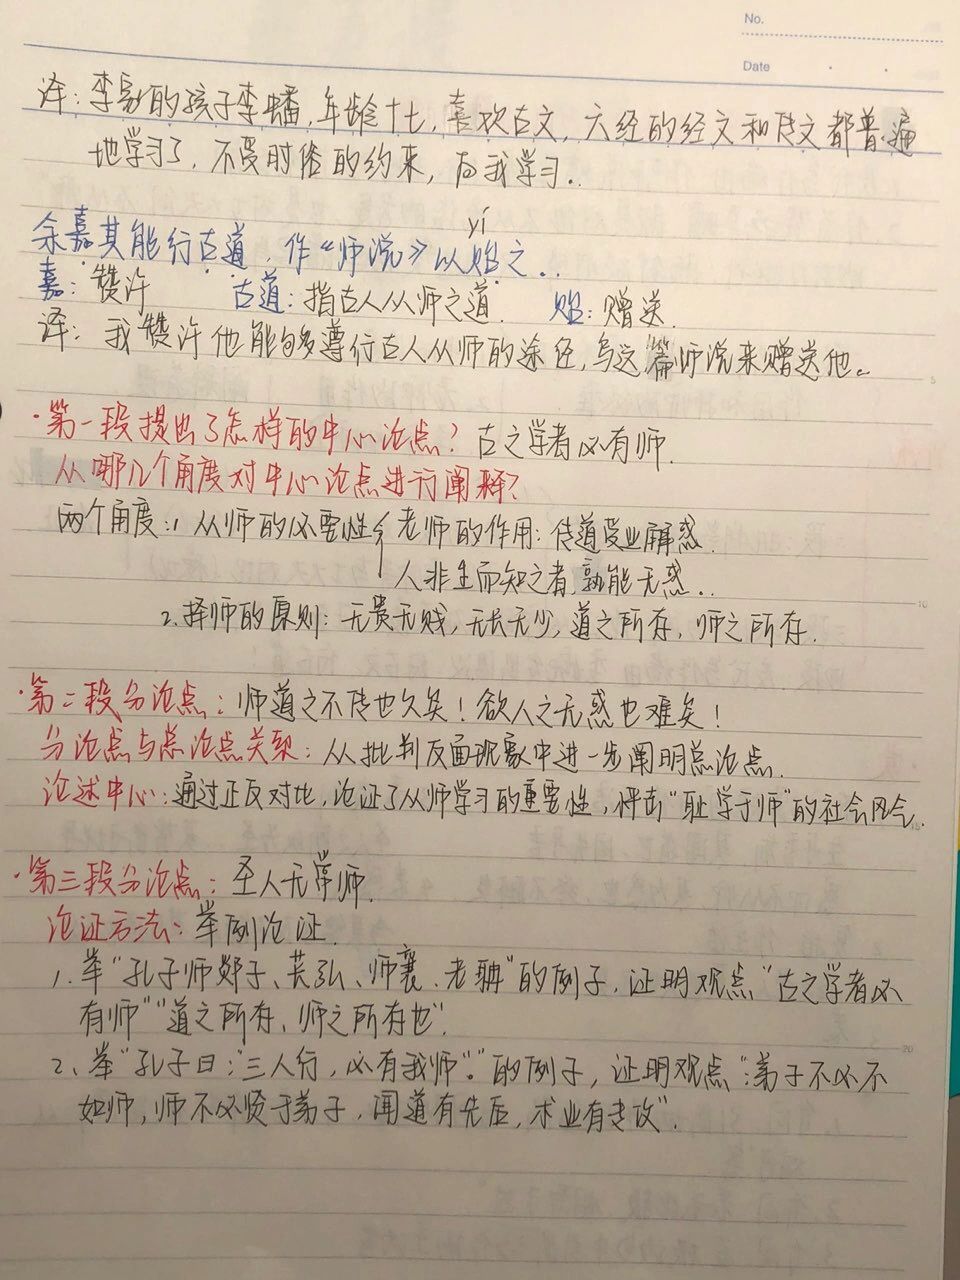 No.
Date
译：李家的孩子李蟠，年龄十七，喜欢古文，六经的经文和传文都普遍
地学习了，不受时俗的约束，向我学习．
yí
余嘉其能行古道，作《师说》以贻之．
嘉：赞许 古道：指古人从师之道． 贻：赠送．
译：我赞许他能够遵行古人从师的途径，写这篇师说来赠送他。
·第一段提出了怎样的中心论点？古之学者必有师．
从哪几个角度对中心论点进行阐释？
两个角度：1 从师的必要性 老师的作用：传道受业解惑．
人非生而知之者，孰能无惑．
2．择师的原则：无贵无贱，无长无少，道之所存，师之所存．
·第二段分论点：师道之不传也久矣！欲人之无惑也难矣！
分论点与总论点关系：从批判反面现象中进一步阐明总论点．
论述中心：通过正反对比，论证了从师学习的重要性，抨击“耻学于师”的社会风气．
·第三段分论点：圣人无常师．
论证方法：举例论证．
1．举“孔子师郯子、苌弘、师襄、老聃”的例子，证明观点“古之学者必
有师”“道之所存，师之所存也”．
2、举“孔子曰：“三人行，必有我师”．”的例子，证明观点“：弟子不必不
如师，师不必贤于弟子，闻道有先后，术业有专攻”．